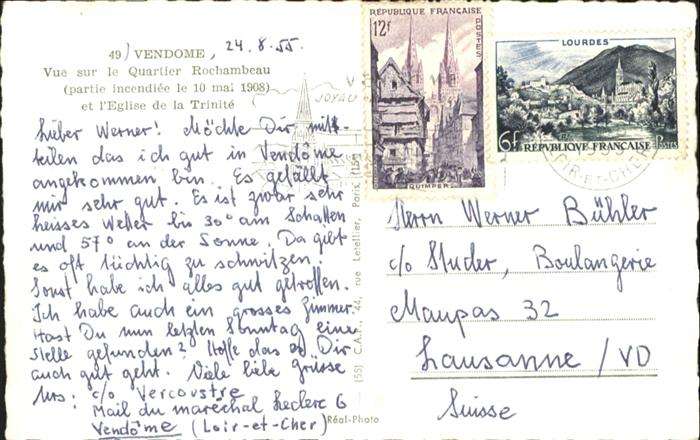 49) VENDOME, 24.8.55.
Vue sur le Quartier Rochambeau
(partie incendiée le 10 mai 1908)
et l'Eglise de la Trinité
Lieber Werner! Möchte Dir mit-
teilen das ich gut in Vendôme
angekommen bin. Es gefällt
mir sehr gut. Es ist zwar sehr
heisses Wetter bis 30° am Schatten
und 57° an der Sonne. Da gibt
es oft tüchtig zu schwitzen.
Sonst habe ich alles gut getroffen.
Ich habe auch ein grosses Zimmer.
Hast Du nun letzten Sonntag eine
Stelle gefunden? Hoffe das es Dir
auch gut geht. Viele liebe Grüsse
Urs: c/o Vercoustre
Mail du maréchal Leclerc 6
Vendôme (Loir-et-Cher)
(55) C.A.P., 44, rue Letellier, Paris (15e)
Réal-Photo
RÉPUBLIQUE FRANÇAISE
12f
POSTES
QUIMPER
LOURDES
6f RÉPUBLIQUE FRANÇAISE Postes
JOYAU
LOIR-et-CHER
Herrn Werner Bühler
c/o Studer, Boulangerie
Maupas 32
Lausanne / VD
Suisse